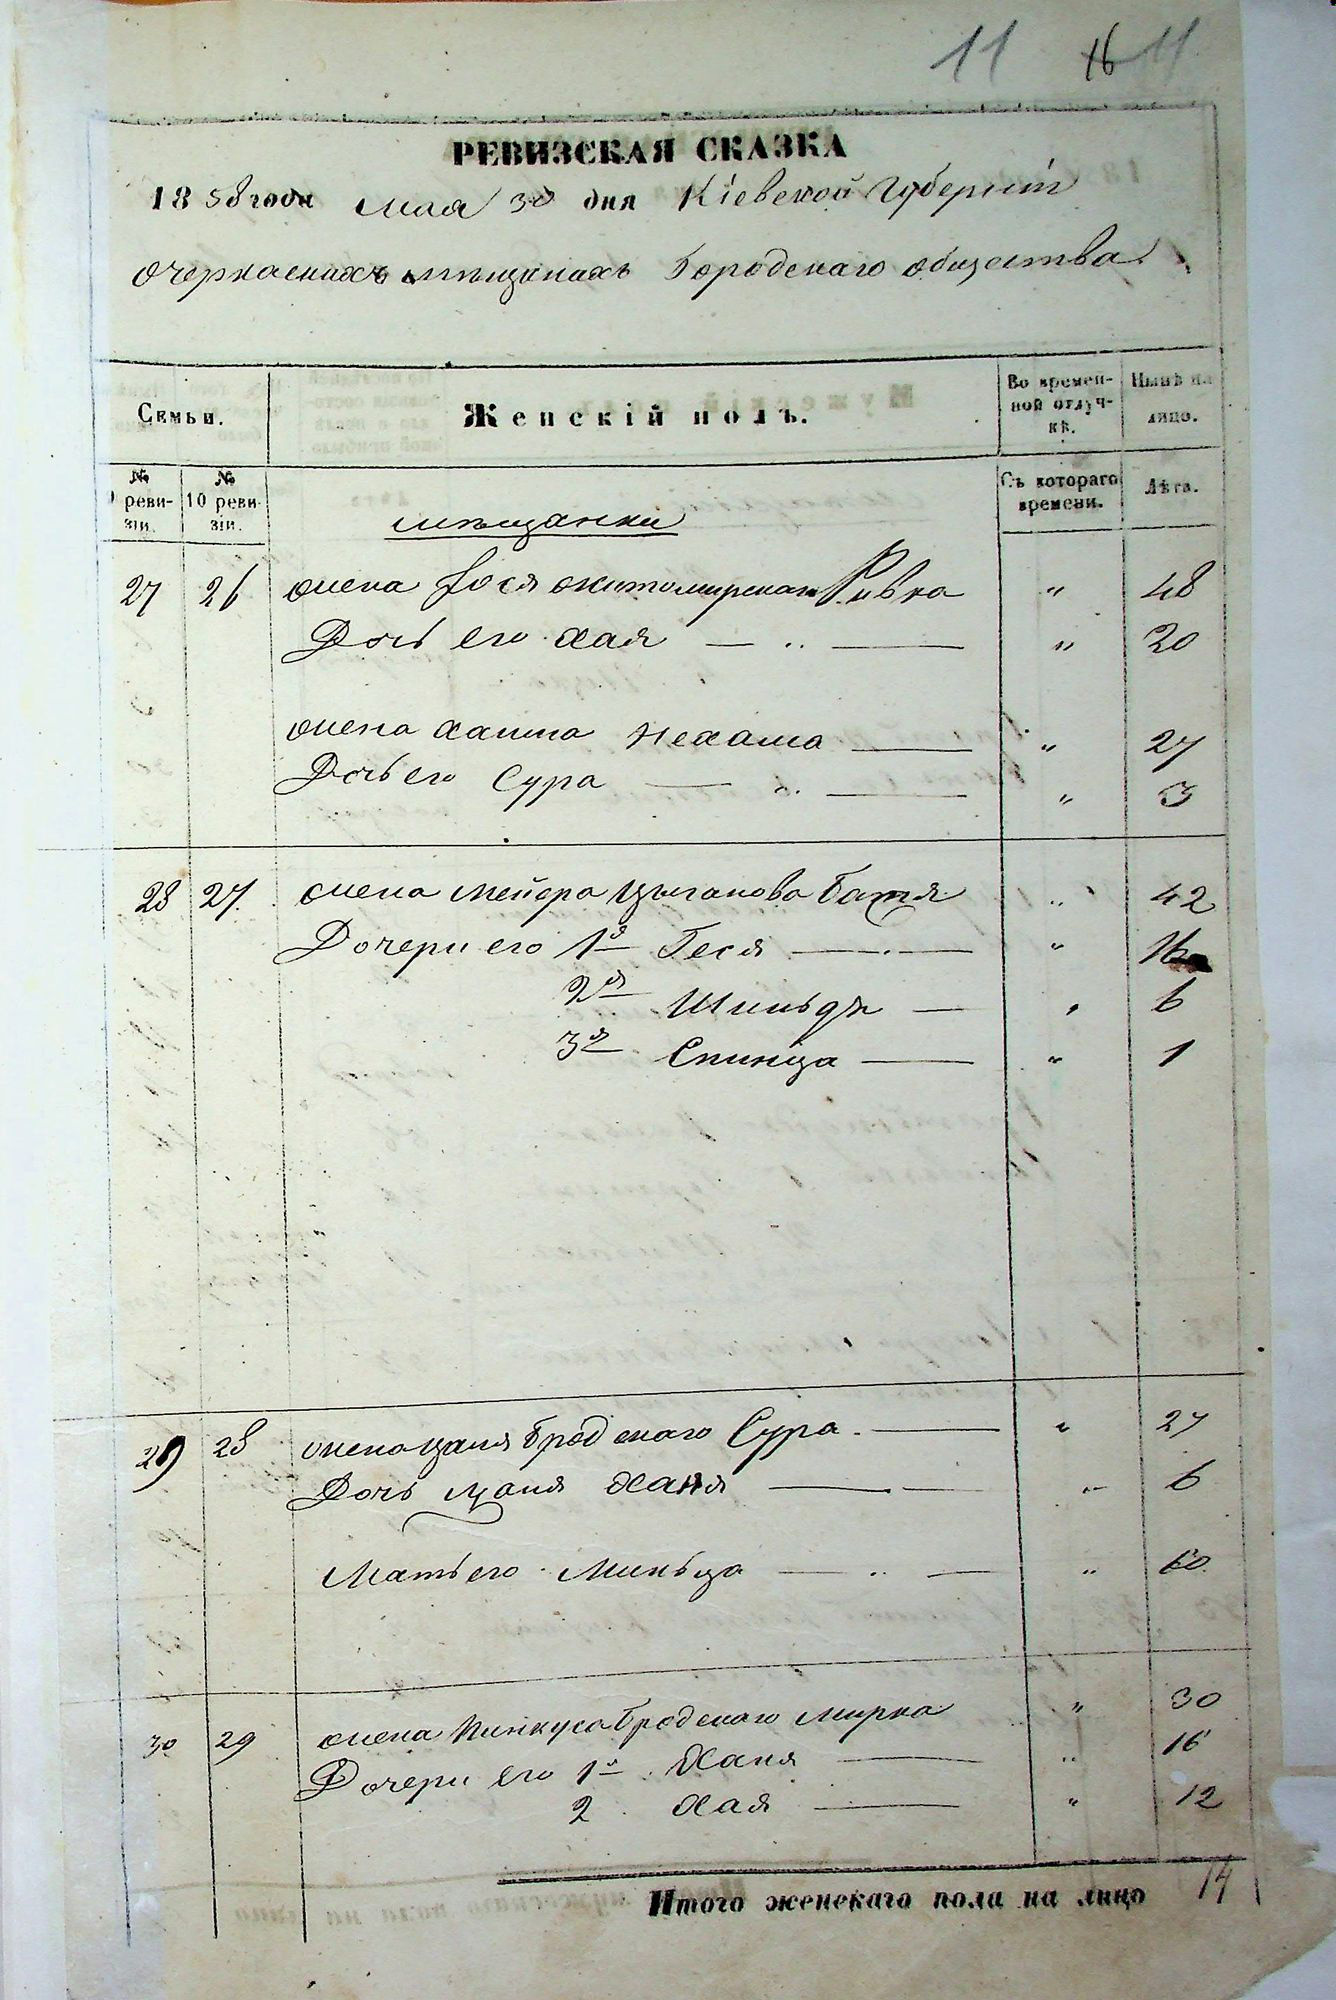 11 16 11
РЕВИЗСКАЯ СКАЗКА
1858 года мая 30 дня Кіевской Губерніи
очеркаскихъ мѣщанахъ Городскаго общества
Семьи.
Женскій полъ.
Во времен-
ной отлуч-
кѣ.
Нынѣ на
лицо.
№
реви-
зіи.
№
10 реви-
зіи.
Съ котораго
времени.
Лѣта.
мѣщанки
27 26 жена Іося житомирскаго Ривка " 48
Дочь его хая — " — " 20
жена хаима Нехама — " 27
Дочь его Сура — " — " 3
28 27. жена мейера Цыганова Батя " 42
Дочери его 1я Геся — " 16
2я Шинъдя — " 6
3я Спинца — " 1
29 28 жена цаля Бродскаго Сура — " 27
Дочь цаля Ханя — " 6
Мать его Миньца — " — " 60
30 29 жена Пинкуса Бродскаго мирка " 30
Дочери его 1я Ханя — " 16
2 хая — " 12
Итого женскаго пола на лицо 14